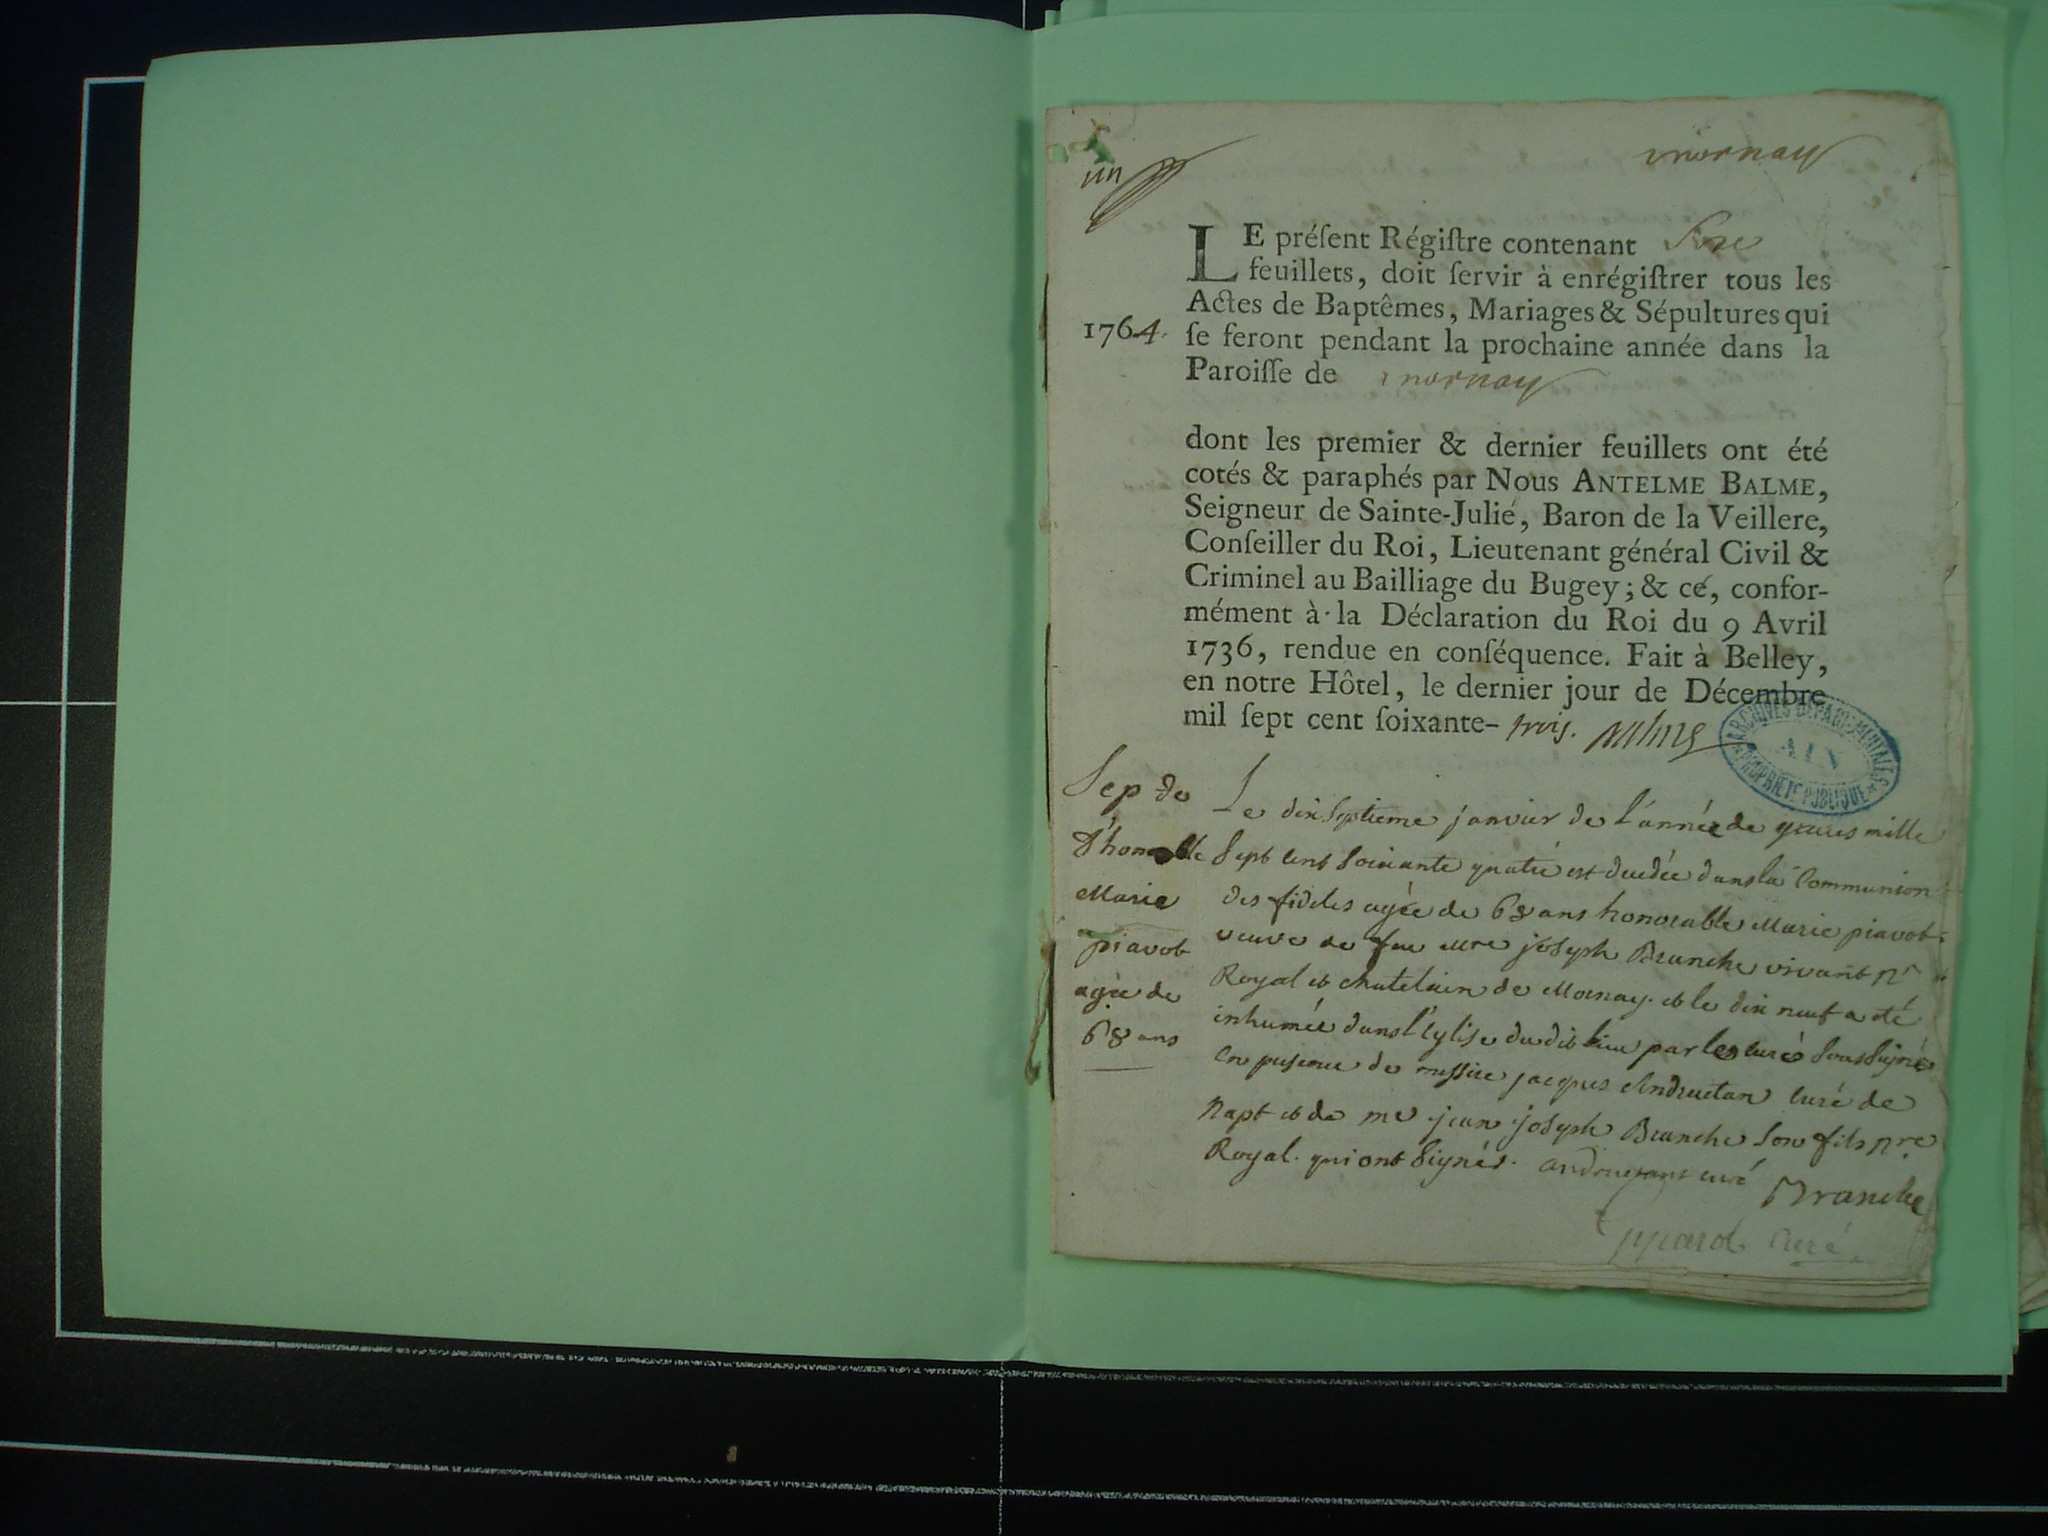 un
mornay
LE préſent Régiſtre contenant
feuillets, doit ſervir à enrégiſtrer tous les
Actes de Baptêmes, Mariages & Sépultures qui
1764. ſe feront pendant la prochaine année dans la
Paroiſſe de mornay
dont les premier & dernier feuillets ont été
cotés & paraphés par Nous ANTELME BALME,
Seigneur de Sainte-Julié, Baron de la Veillere,
Conſeiller du Roi, Lieutenant général Civil &
Criminel au Bailliage du Bugey; & cé, confor-
mément à la Déclaration du Roi du 9 Avril
1736, rendue en conſéquence. Fait à Belley,
en notre Hôtel, le dernier jour de Décembre
mil ſept cent ſoixante- trois. Balme
ARCHIVES DEPARTEMENTALES
AIN
PROPRIETE PUBLIQUE
Sep de
d'honorable
Marie
piavot
agée de
68 ans
Le dix Septieme janvier de l'année de graces mille
Sept cent Soixante quatre est decedée dans la Communion
des fideles agée de 68 ans honorable Marie piavot
veuve de feu mre joseph Branche vivant nre
Royal et chatelain de Mornay. et le dix neuf a été
inhumée dans l'Eglise dudit lieu par les curé Soussigné
en presence de messire jacques Andruetan curé de
Napt et de me jean joseph Branche son fils nre
Royal. qui ont Signés. curé Branche
curé